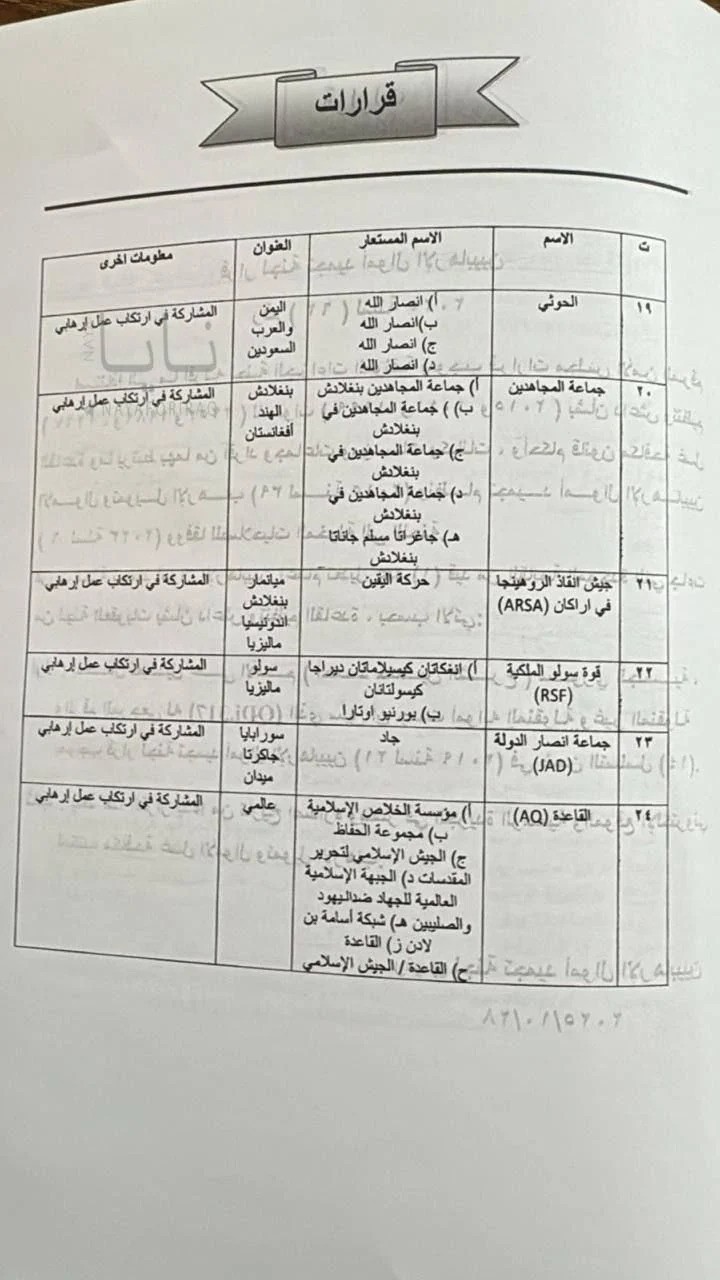 قرارات
ت الاسم الاسم المستعار العنوان معلومات اخرى
١٩ الحوثي أ) انصار الله اليمن المشاركة في ارتكاب عمل إرهابي
ب)انصار الله والعرب
ج) انصار الله السعودين
د) انصار الله
نابا
٢٠ جماعة المجاهدين أ) جماعة المجاهدين بنغلادش بنغلادش المشاركة في ارتكاب عمل إرهابي
ب) ) جماعة المجاهدين في الهند
بنغلادش أفغانستان
ج) جماعة المجاهدين في
بنغلادش
د) جماعة المجاهدين في
بنغلادش
هـ) جاغراتا مسلم جاناتا
بنغلادش
٢١ جيش انقاذ الروهينجا حركة اليقين ميانمار المشاركة في ارتكاب عمل إرهابي
في اراكان (ARSA) بنغلادش
اندونيسيا
ماليزيا
٢٢ قوة سولو الملكية أ) انغكاتان كيسيلاماتان ديراجا سولو المشاركة في ارتكاب عمل إرهابي
(RSF) كيسولتانان ماليزيا
ب) بورنيو اوتارا
٢٣ جماعة انصار الدولة جاد سورابايا المشاركة في ارتكاب عمل إرهابي
(JAD) جاكرتا
ميدان
٢٤ القاعدة (AQ) أ) مؤسسة الخلاص الإسلامية عالمي المشاركة في ارتكاب عمل إرهابي
ب) مجموعة الحفاظ
ج) الجيش الإسلامي لتحرير
المقدسات د) الجبهة الإسلامية
العالمية للجهاد ضداليهود
والصليبين هـ) شبكة أسامة بن
لادن ز) القاعدة
ح) القاعدة / الجيش الإسلامي